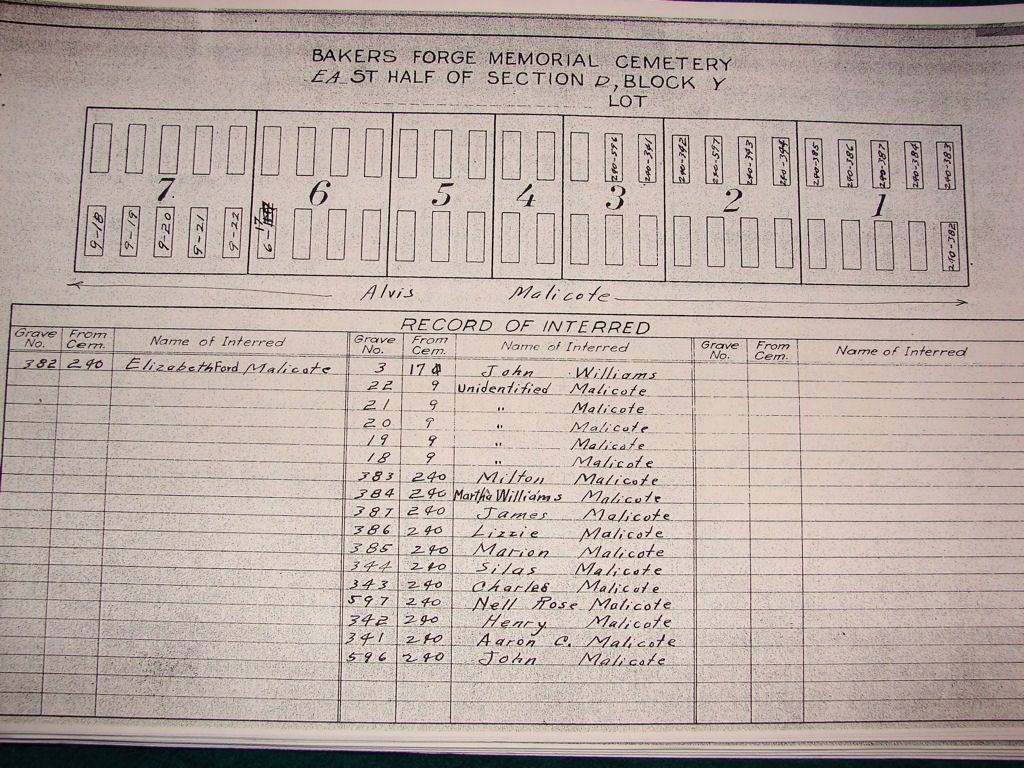 BAKERS FORGE MEMORIAL CEMETERY
EAST HALF OF SECTION D, BLOCK Y
LOT
240-596 240-341 240-342 240-597 240-343 240-344 240-385 240-386 240-387 240-384 240-383
7 6 5 4 3 2 1
9-18 9-19 9-20 9-21 9-22 6-17 240-382
Alvis Malicote
RECORD OF INTERRED
Grave No. From Cem. Name of Interred Grave No. From Cem. Name of Interred Grave No. From Cem. Name of Interred
382 240 Elizabeth Ford Malicote 3 17 John Williams
22 9 Unidentified Malicote
21 9 " Malicote
20 9 " Malicote
19 9 " Malicote
18 9 " Malicote
383 240 Milton Malicote
384 240 Martha Williams Malicote
387 240 James Malicote
386 240 Lizzie Malicote
385 240 Marion Malicote
344 240 Silas Malicote
343 240 Charles Malicote
597 240 Nell Rose Malicote
342 240 Henry Malicote
341 240 Aaron C. Malicote
596 240 John Malicote